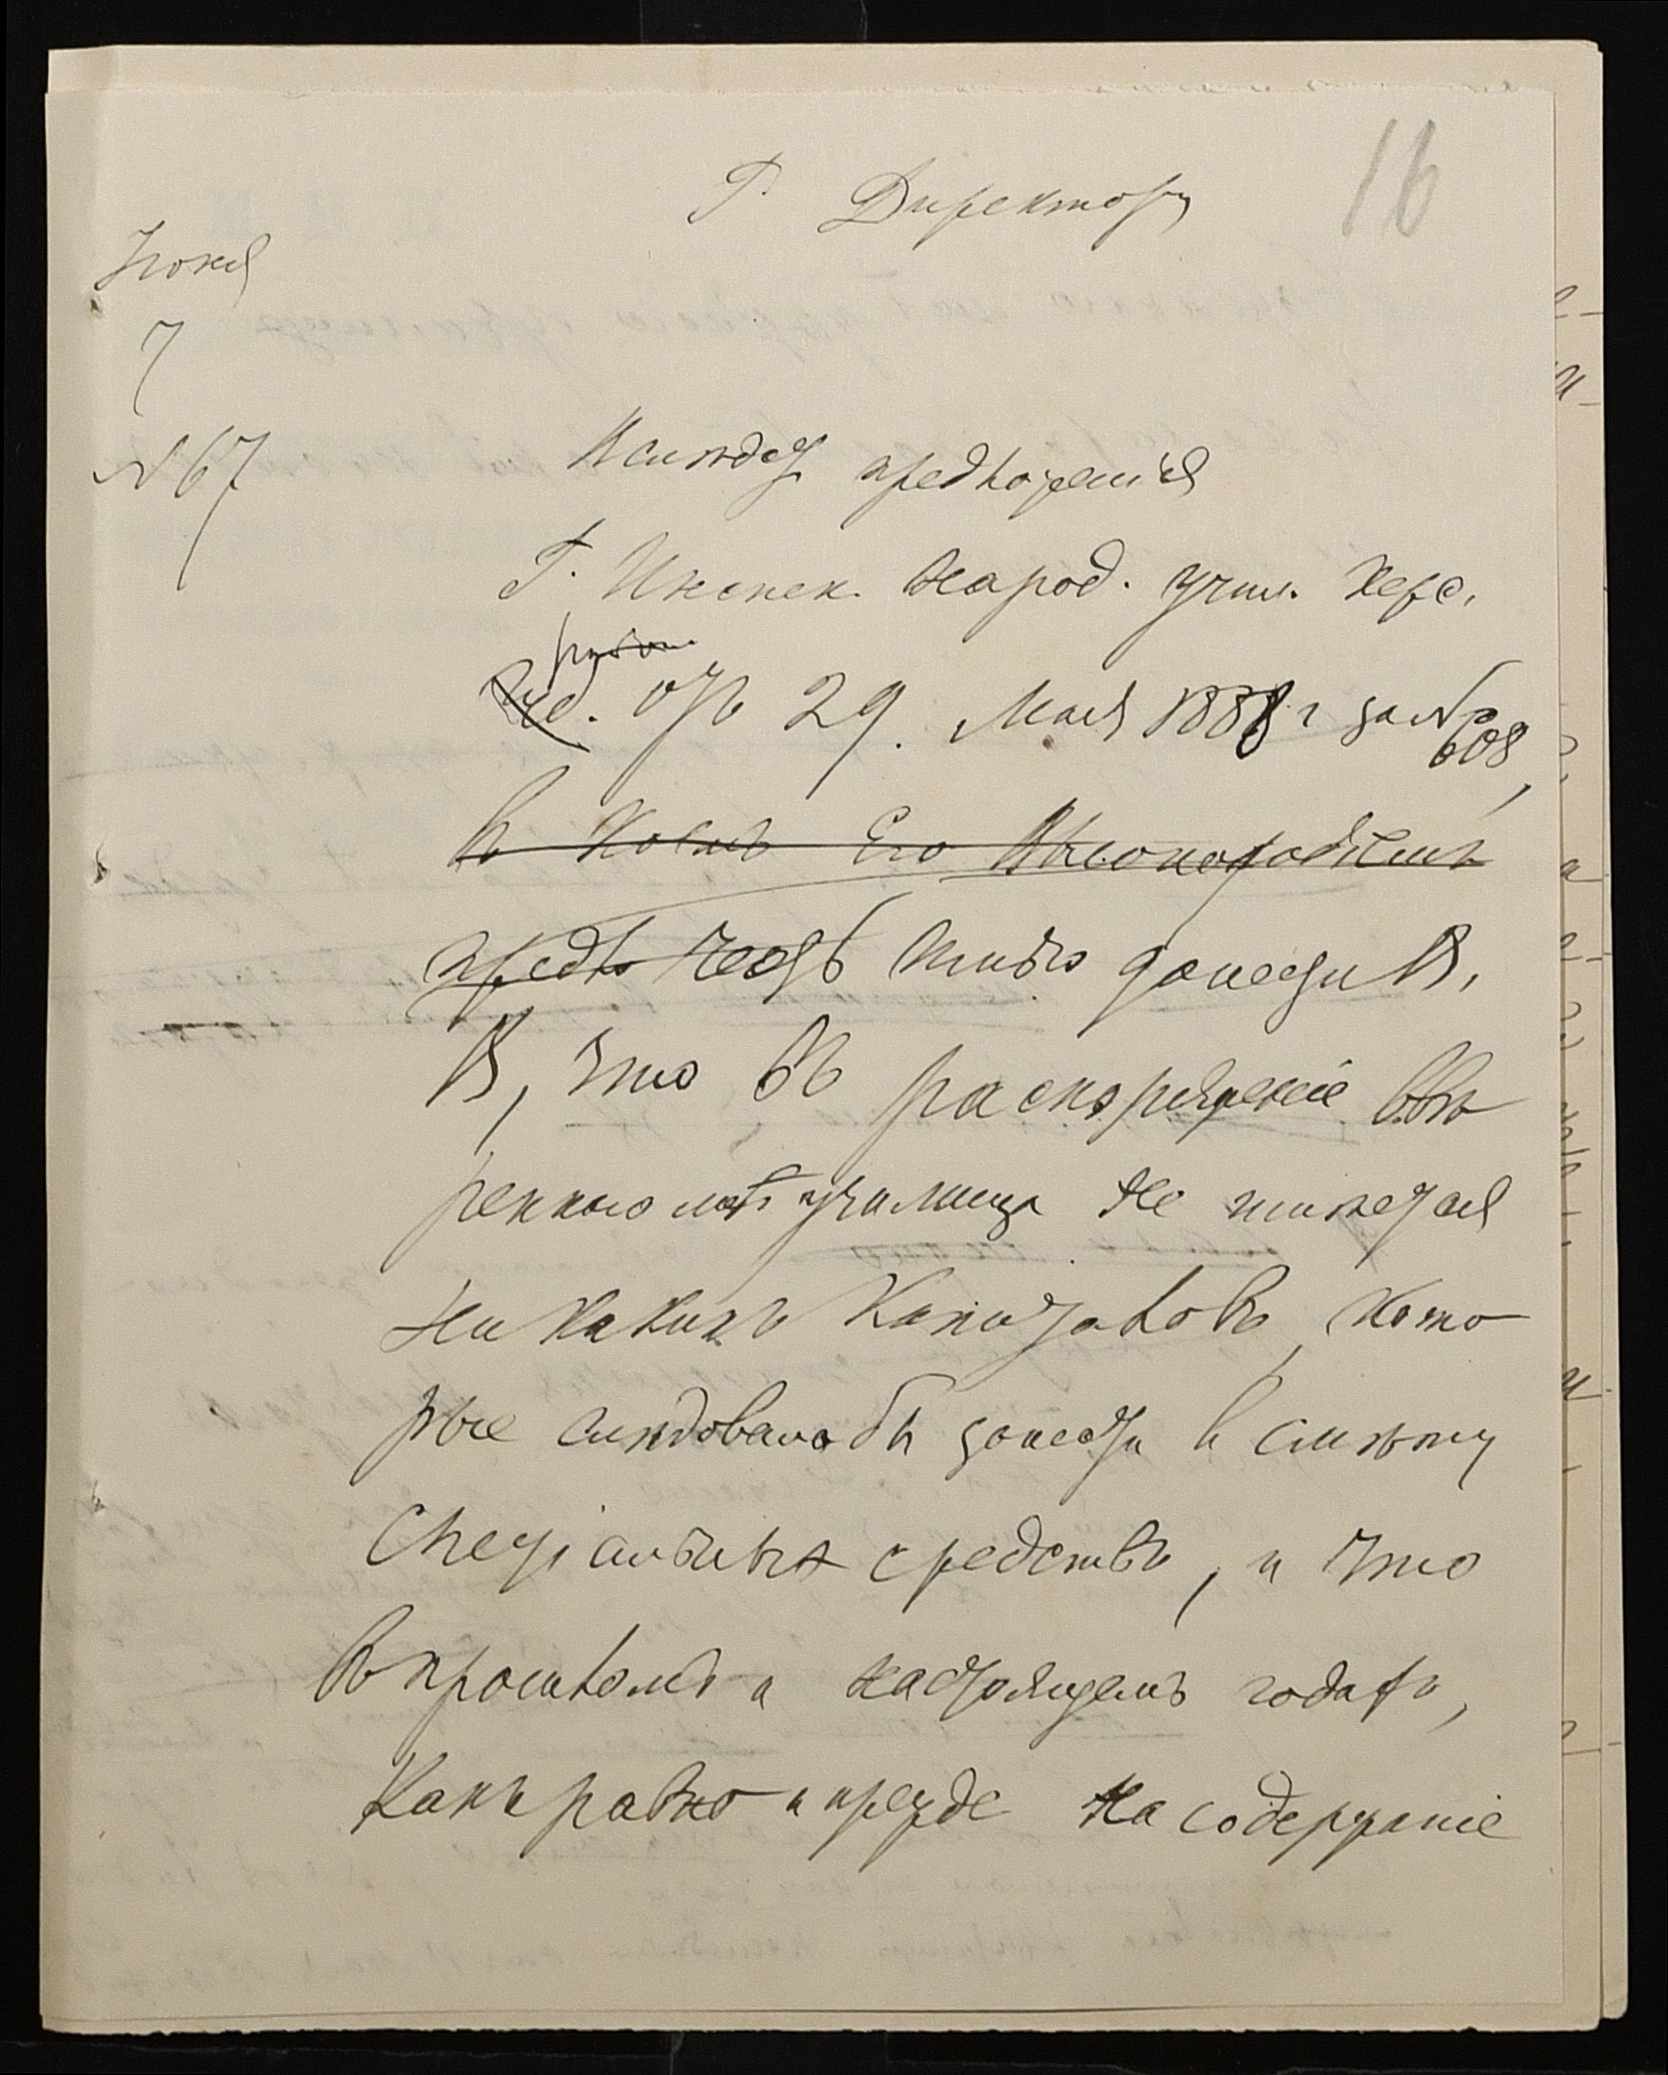 16
Г. Директору
Іюня
7
№ 67
Вслѣдств предложенія
Г. Инспек. Народ. учил. Херс.
губ. отъ 29 Мая 1888 г за №
608,
въ коемъ Его Высокородіемъ
предло честь имѣю донести В.
В, что въ распоряженіе ввѣ
реннаго мнѣ училища не имѣется
никакихъ капиталовъ, кото
рые слѣдовало бы занести в смѣту
спеціальныхъ средствъ, и что
въ прошломъ и настоящемъ годахъ,
какъ равно и прежде на содержаніе